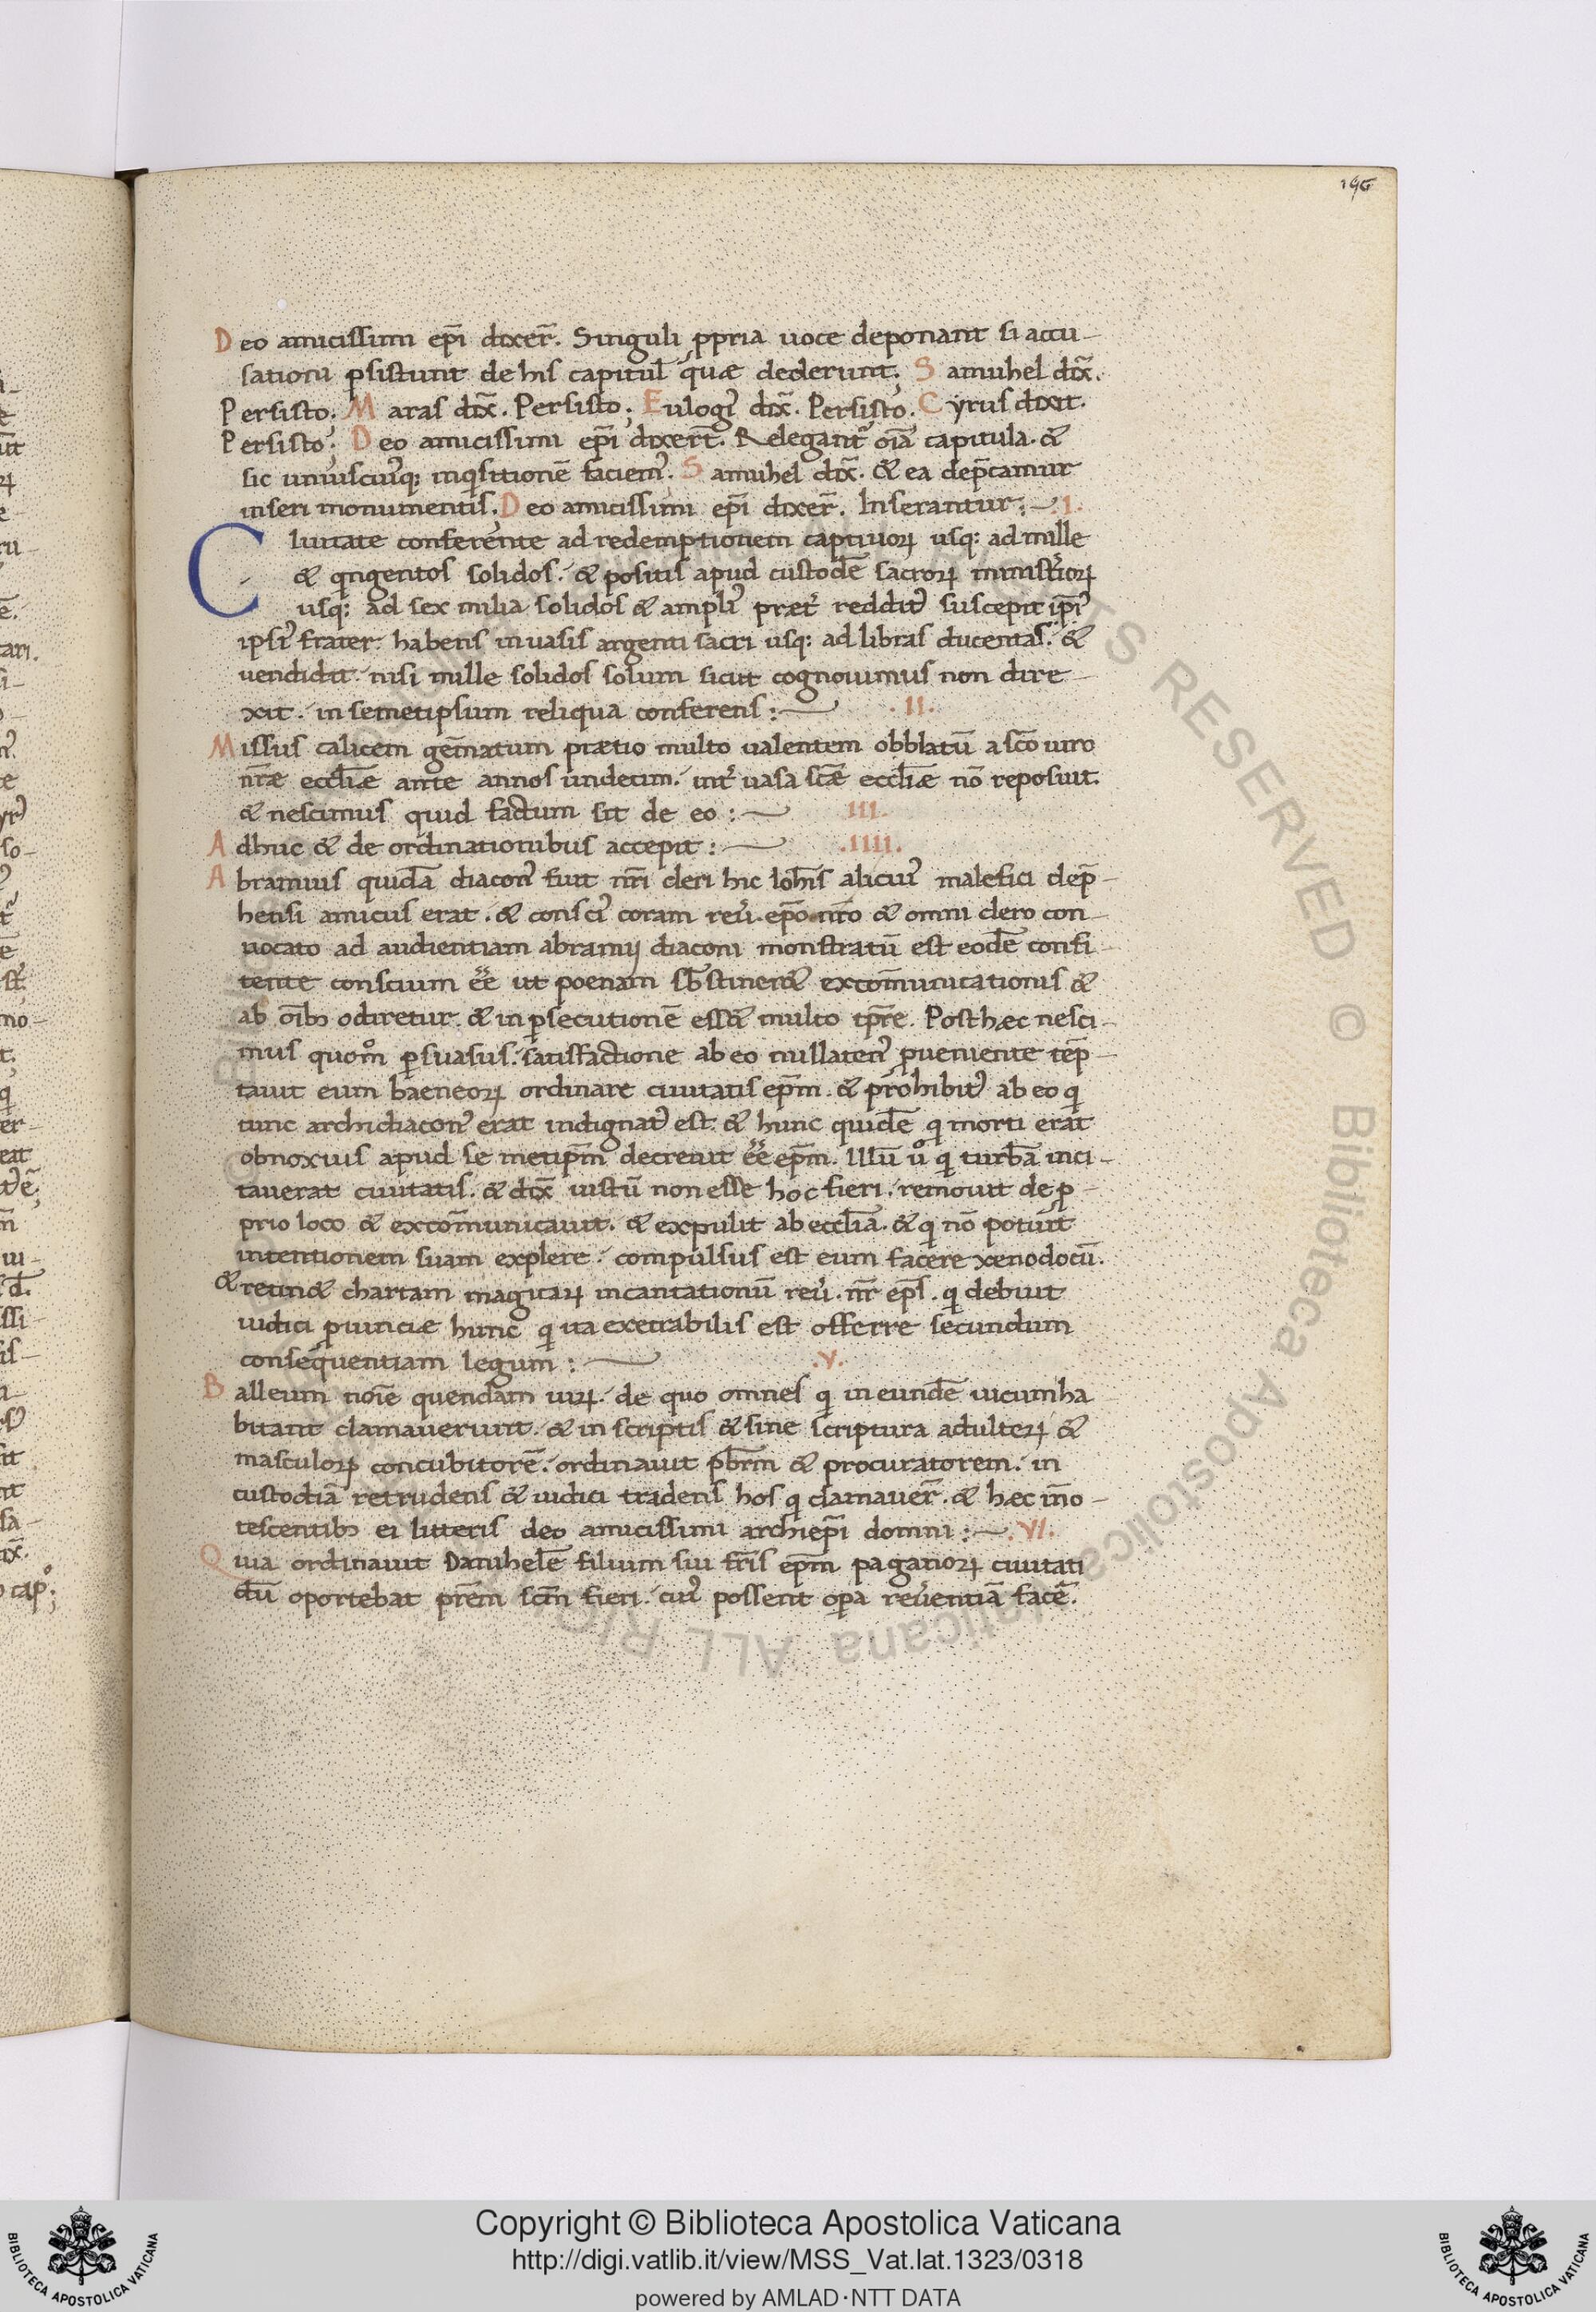 196
Deo amicissimi ep̄i dixer̄. Singuli ꝓpria uoce deponant si accu-
sationi ꝑsistunt de his capitul̄ quæ dederunt. Samuhel dix̄.
Persisto. Maras dix̄. Persisto. Eulogi᾽ dix̄. Persisto. Cyrus dixit.
Persisto. Deo amicissimi ep̄i dixer̄t. Relegant᾽ oīa capitula. &
sic uniuscui᾽q; inq̇sitionē faciem᾽. Samuhel dix̄. & ea dep̄camur
inseri monumentis. Deo amicissimi ep̄i dixer̄. Inserantur:— I.
Ciuitate conferente ad redemptionem captiuoꝝ usq; ad mille
& qingentos solidos. & positis apud custodē sacroꝝ minist᾽ioꝝ
usq; ad sex milia solidos & ampli᾽ præt᾽ reddit᾽ suscepit ip̄i᾽
ipsi᾽ frater. habens in uasis argenti sacri usq; ad libras ducentas. &
uendidit. nisi mille solidos solum sicut cognouimus non dire-
xit. in semetipsum reliqua conferens:— .II.
Missus calicem gem̄atum prætio multo ualentem obblatū a sc̄o uiro
nr̄æ eccl̄iæ ante annos undecim. int᾽ uasa sc̄æ eccl̄iæ nō reposuit.
& nescimus quid factum sit de eo:— III.
Adhuc & de ordinationibus accepit:— .IIII.
Abramius quidā diacon᾽ fuit nr̄i cleri hic loh̄is alicui᾽ malefici dep̄-
hensi amicus erat. & consci᾽ coram reu᾽. ep̄o nr̄o & omni clero con-
uocato ad audientiam abramij diaconi monstratū est eodē confi-
tente conscium ēē ut poenam sb̄stiner& excom̄unicationis &
ab oīb; odiretur. & in ꝑsecutionē ess& multo tp̄re. Post hæc nesci-
mus quom̊ ꝑsuasus. satisfactione ab eo nullaten᾽ ꝓueniente tep̄-
tauit eum baeneoꝝ ordinare ciuitatis ep̄m. & prohibit᾽ ab eo qi
tunc archidiacon᾽ erat indignat᾽ est. & hunc quidē qi morti erat
obnoxius apud se metip̄m decreuit ēē ep̄m. Illū ů qi turbā inci-
tauerat ciuitatis. & dix̄ iustū non esse hoc fieri. remouit de ꝓ-
prio loco & excom̄unicauit. & expulit ab eccl̄ia. & qi nō potuit
intentionem suam explere. compulsus est eum facere xenodociū.
& retin& chartam magicaꝝ incantationū reu᾽. nr̄ ep̄s. qi debuit
iudici ꝓuinciæ hunc qi ita execrabilis est offerre secundum
consequentiam legum:— .V.
Balleum noīe quendam uiꝝ. de quo omnes qi in eundē uicum ha
bitant clamauerunt. & in scriptis & sine scriptura adulteꝝ &
masculoꝝ concubitorē. ordinauit p̄brm & procuratorem. in
custodiā retrudens & iudici tradens hos qi clamauer̄. & hæc in̄o-
tescentib; ei litteris deo amicissimi archiep̄i domni:— .VI.
Quia ordinauit Danihelē filium sui fr̄is ep̄m paganoꝝ ciuitati
dū oportebat pr̄em sc̄m fieri. cui᾽ possent opa reuerentiā facē.
Copyright © Biblioteca Apostolica Vaticana
http://digi.vatlib.it/view/MSS_Vat.lat.1323/0318
powered by AMLAD·NTT DATA